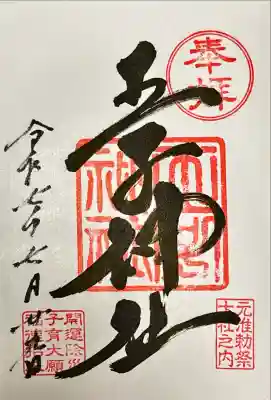 奉拝
元准勅祭
十社之内
王子神社
王子
神社
令和七年七月
開運除災
子育大願